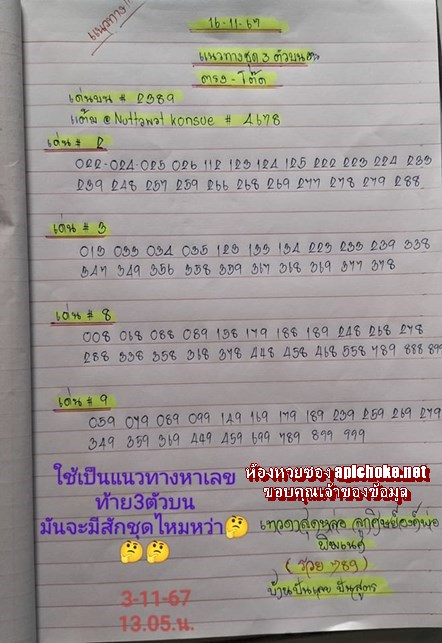 แนวทาง
16-11-67
แนวทางชุด 3 ตัวบน
ตรง - โต๊ด
เด่นบน # 2389
แต้ม @ Nuttawat konsue # 4678
เด่น # 2
022-024-025 026 112 123 124 125 222 223 224 233
239 248 257 259 266 268 269 277 278 279 288
เด่น # 3
013 033 034 035 123 133 134 223 233 239 338
347 349 356 358 359 367 368 369 377 378
เด่น # 8
008 068 088 089 158 179 188 189 248 268 278
288 338 358 368 378 448 458 468 558 789 888 899
เด่น # 9
059 079 089 099 149 169 179 189 239 259 269 279
349 359 369 449 459 699 789 899 999
ใช้เป็นแนวทางหาเลข
ท้าย3ตัวบน
มันจะมีสักชุดไหมหว่า🤔
🤔🤔
ห้องหวยของ apichoke.net
ขอบคุณเจ้าของข้อมูล
เทวดาสุดหล่อ
(รวย 789)
บ้านปั่นเลข ปั่นสูตร
3-11-67
13.05.น.